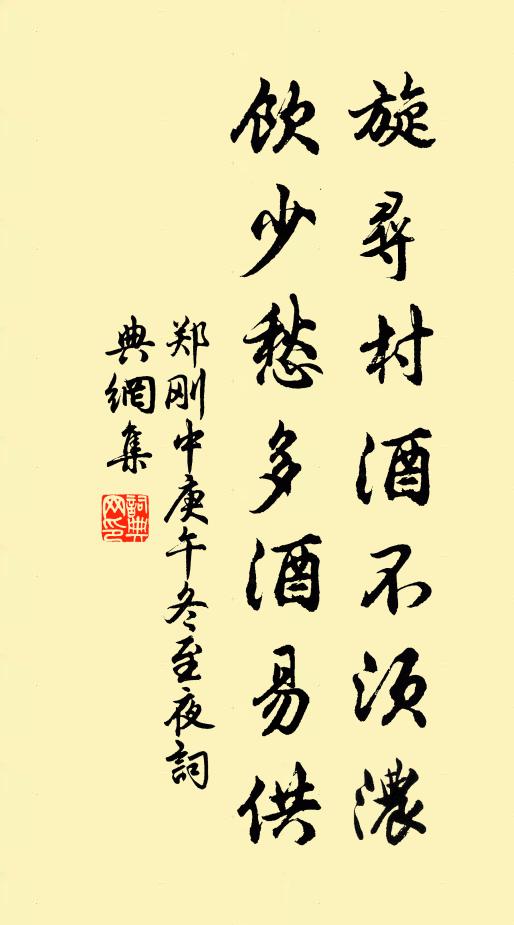 旋尋村酒不須濃
飲少愁多酒易供
郑刚中庚午冬至夜詞
典網集
詞典网印